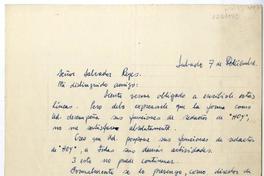 Sábado 7 de Setiembre.
Señor Salvador Reyes.
Mi distinguido amigo:
Siento verme obligado a escribirle estas
líneas. Pero debo expresarle que la forma como
Ud. desempeña sus funciones de redactor de "HOY",
no me satisface absolutamente.
Creo que Ud. pospone sus funciones de redactor
de "HOY", a todas sus demás actividades.
Y esto no puede continuar.
Formalmente se lo prevengo, como director de